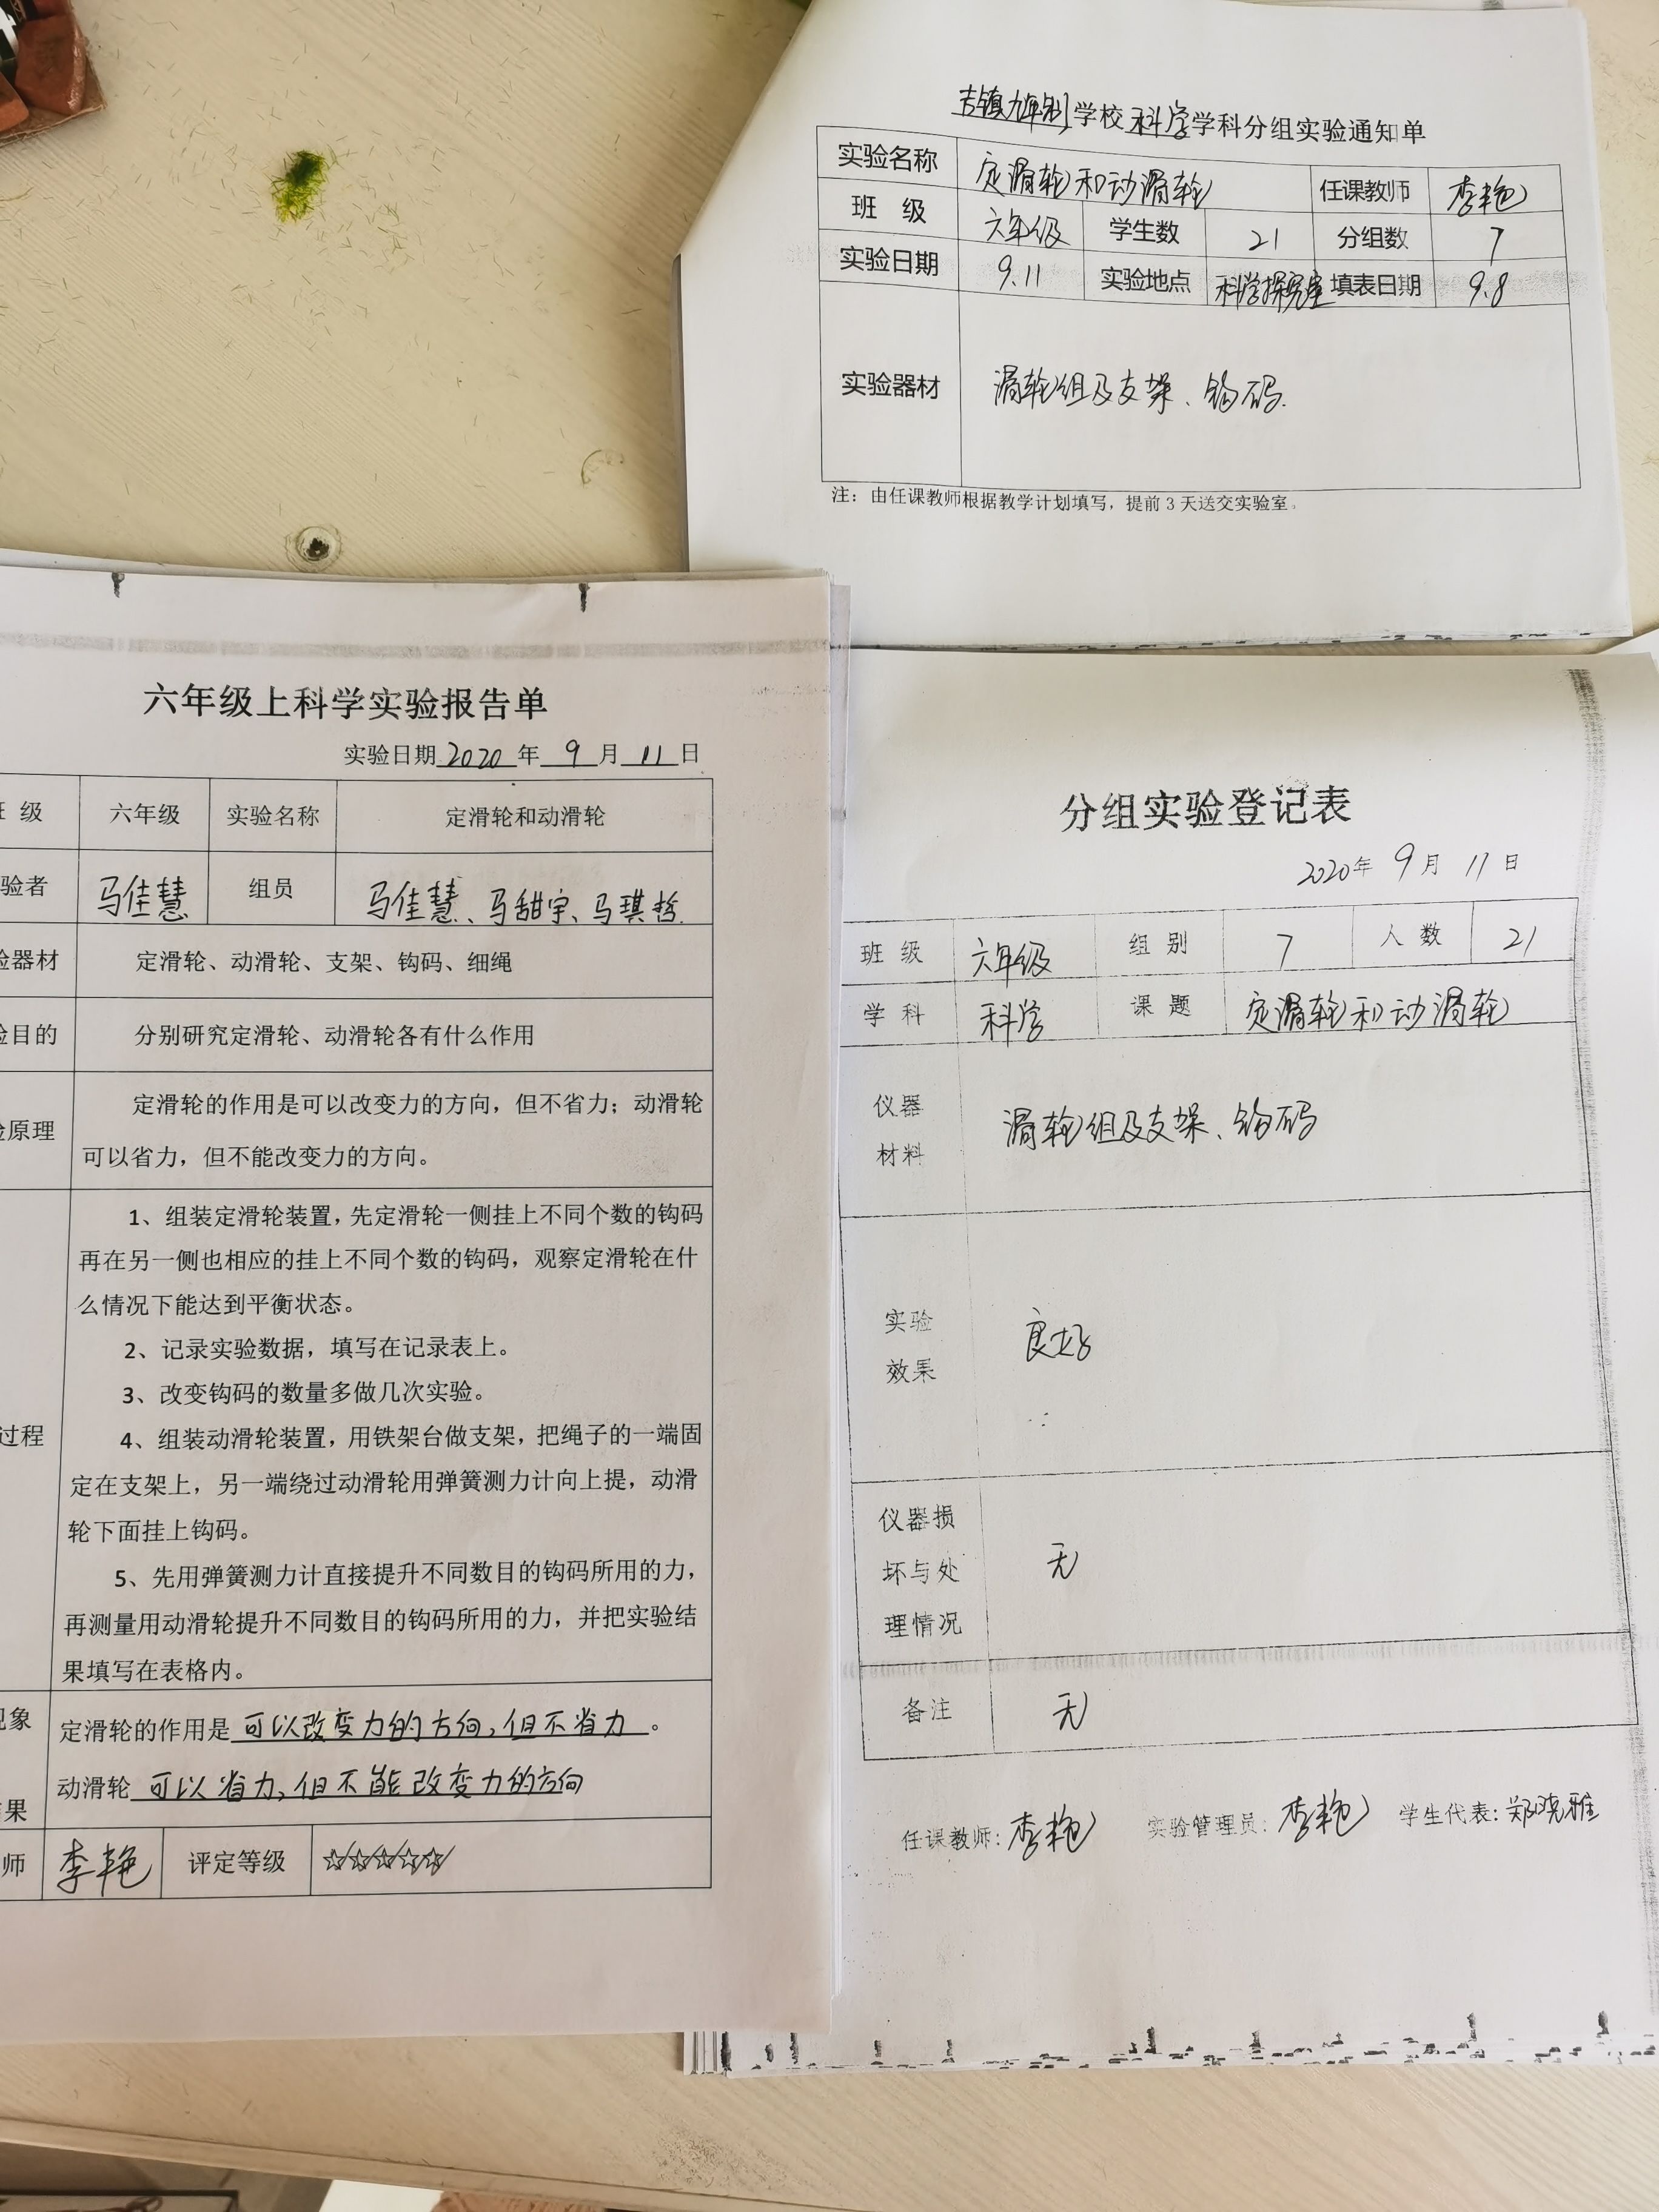 吉镇九年制学校科学学科分组实验通知单
实验名称 定滑轮和动滑轮 任课教师 李艳
班 级 六年级 学生数 21 分组数 7
实验日期 9.11 实验地点 科学探究室 填表日期 9.8
实验器材 滑轮组及支架、钩码.
注：由任课教师根据教学计划填写，提前3天送交实验室。
六年级上科学实验报告单
实验日期2020年9月11日
级 六年级 实验名称 定滑轮和动滑轮
验者 马佳慧 组员 马佳慧、马甜宇、马琪哲.
器材 定滑轮、动滑轮、支架、钩码、细绳
目的 分别研究定滑轮、动滑轮各有什么作用
原理 定滑轮的作用是可以改变力的方向，但不省力；动滑轮
可以省力，但不能改变力的方向。
过程
1、组装定滑轮装置，先定滑轮一侧挂上不同个数的钩码
再在另一侧也相应的挂上不同个数的钩码，观察定滑轮在什
么情况下能达到平衡状态。
2、记录实验数据，填写在记录表上。
3、改变钩码的数量多做几次实验。
4、组装动滑轮装置，用铁架台做支架，把绳子的一端固
定在支架上，另一端绕过动滑轮用弹簧测力计向上提，动滑
轮下面挂上钩码。
5、先用弹簧测力计直接提升不同数目的钩码所用的力，
再测量用动滑轮提升不同数目的钩码所用的力，并把实验结
果填写在表格内。
现象 定滑轮的作用是可以改变力的方向，但不省力。
果 动滑轮可以省力，但不能改变力的方向
师 李艳 评定等级 ☆☆☆☆☆
分组实验登记表
2020年9月11日
班 级 六年级 组 别 7 人 数 21
学 科 科学 课 题 定滑轮和动滑轮
仪器
材料 滑轮组及支架、钩码
实验
效果 良好
仪器损
坏与处 无
理情况
备注 无
任课教师：李艳 实验管理员：李艳 学生代表：郑晓雅